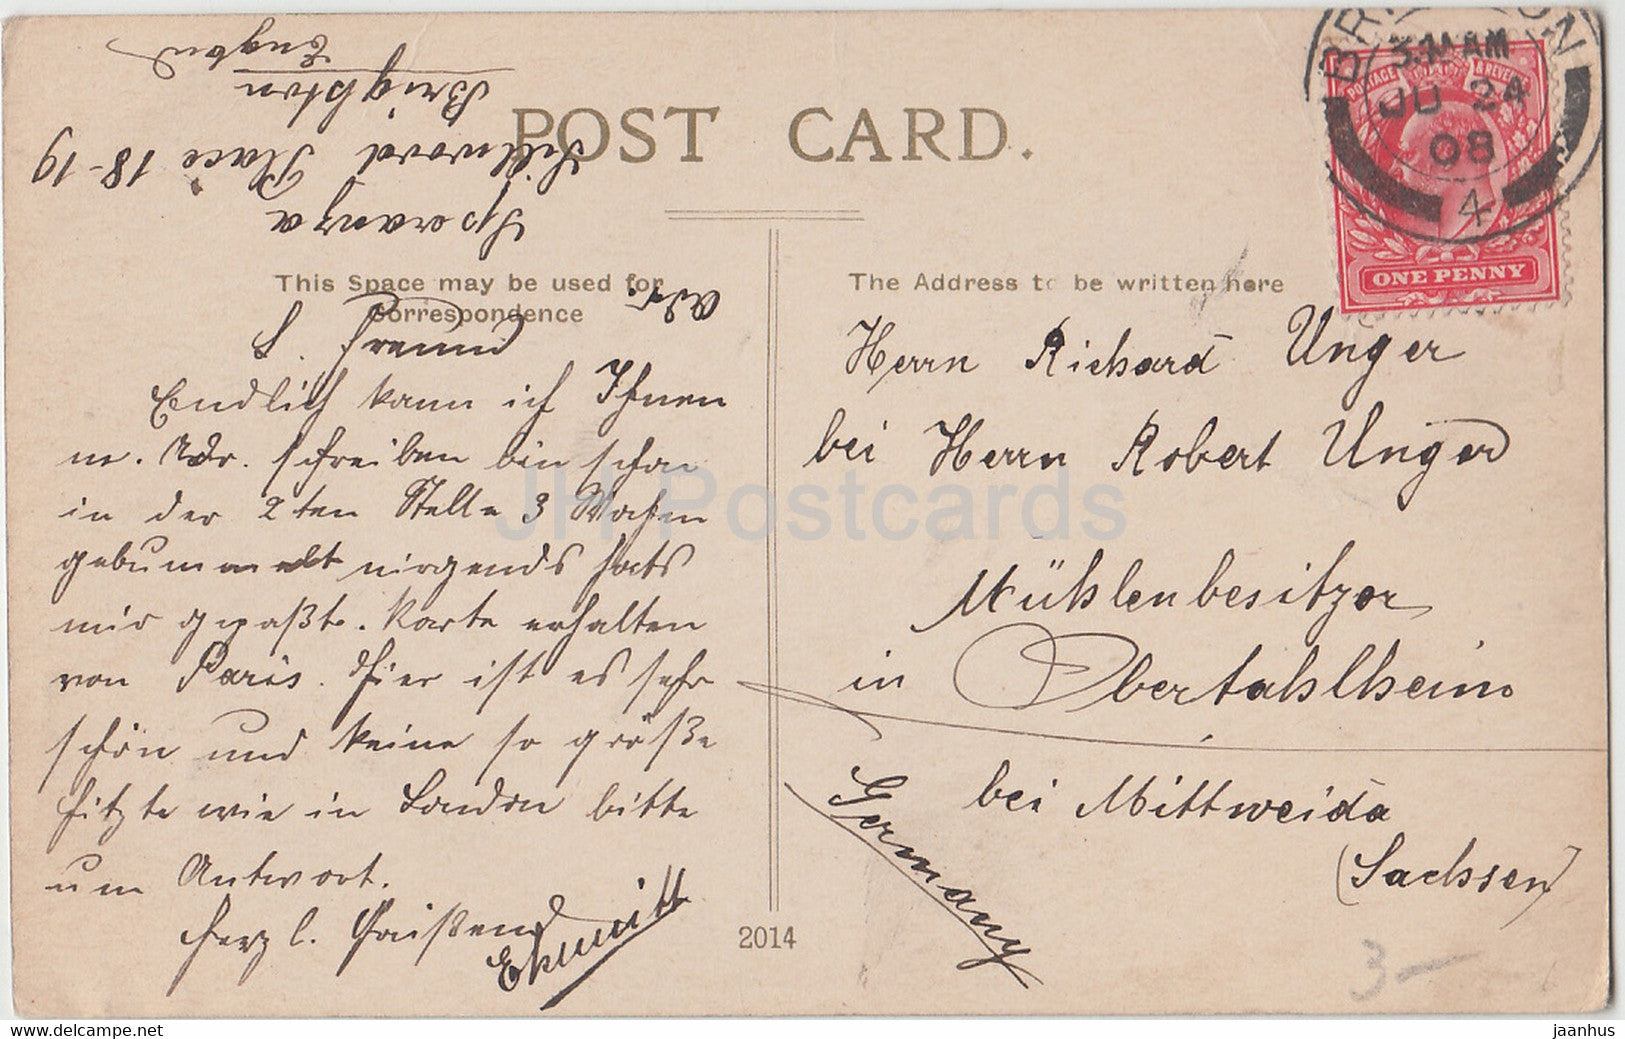 POST CARD.
This Space may be used for
Correspondence
The Address to be written here
BRIGHTON
3.15 AM
JU 24
08
4
POSTAGE & REVENUE
ONE PENNY
Adr.
Speranza
Sillwood Place 18-19
Brighton
England
L. Freund
Endlich kann ich Ihnen
m. Adr. schreiben bin schon
in der 2ten Stelle 3 Wochen
gebummelt nirgends hats
mir gepaßt. Karte erhalten
von Paris. Hier ist es sehr
schön und keine so größe
Hitzte wie in London bitte
um Antwort.
Herzl. Grüßend
Herrn Richard Unger
bei Herrn Robert Unger
Mühlenbesitzer
in Obertahlheim
bei Mittweida
(Sachsen)
Germany
2014
3-
JH Postcards
www.delcampe.net
jaanhus